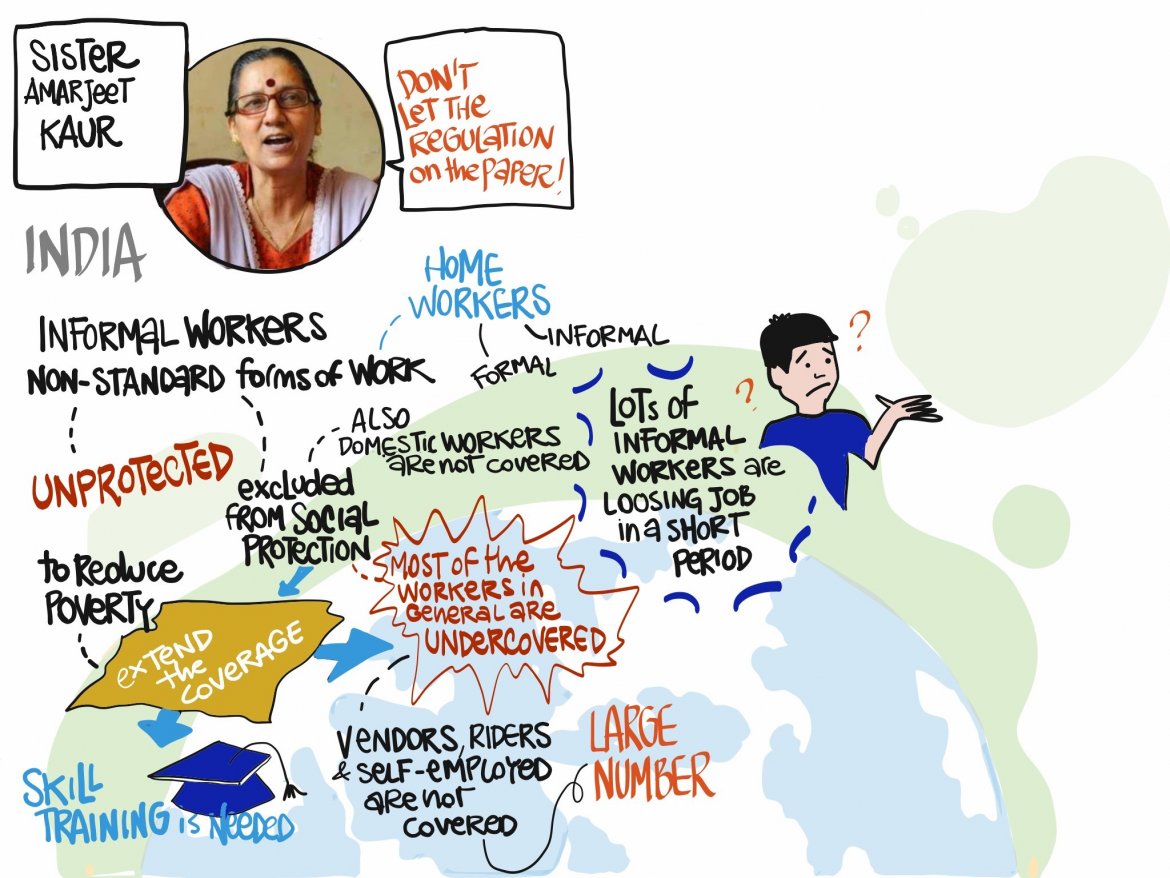 SISTER
AMARJEET
KAUR
DON'T
LET THE
REGULATION
on the PAPER!
INDIA
HOME
WORKERS
INFORMAL
FORMAL
INFORMAL WORKERS
NON-STANDARD forms of WORK
UNPROTECTED
ALSO
DOMESTIC WORKERS
are not covered
excluded
FROM SOCIAL
PROTECTION
LOTS of
INFORMAL
WORKERS are
LOOSING JOB
in a SHORT
PERIOD
?
?
to Reduce
POVERTY
extend
the
COVERAGE
MOST of the
WORKERS in
General are
UNDERCOVERED
VENDORS, RIDERS
& SELF-EMPLOYED
are not
covered
LARGE
NUMBER
SKILL
TRAINING is NEEDED